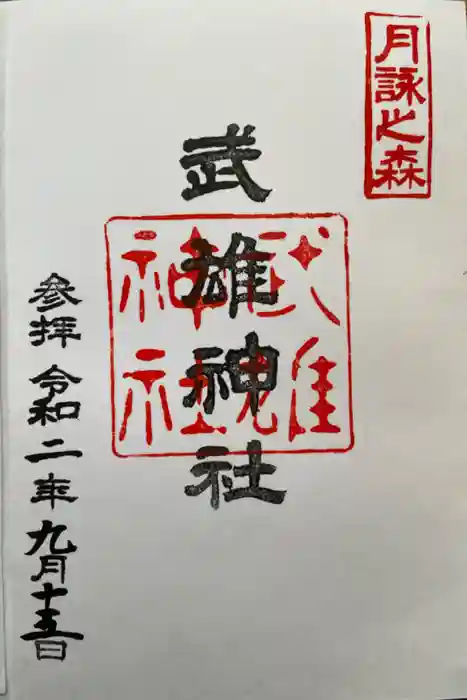 月詠之森
武雄神社
武雄神社
参拝 令和二年九月十五日